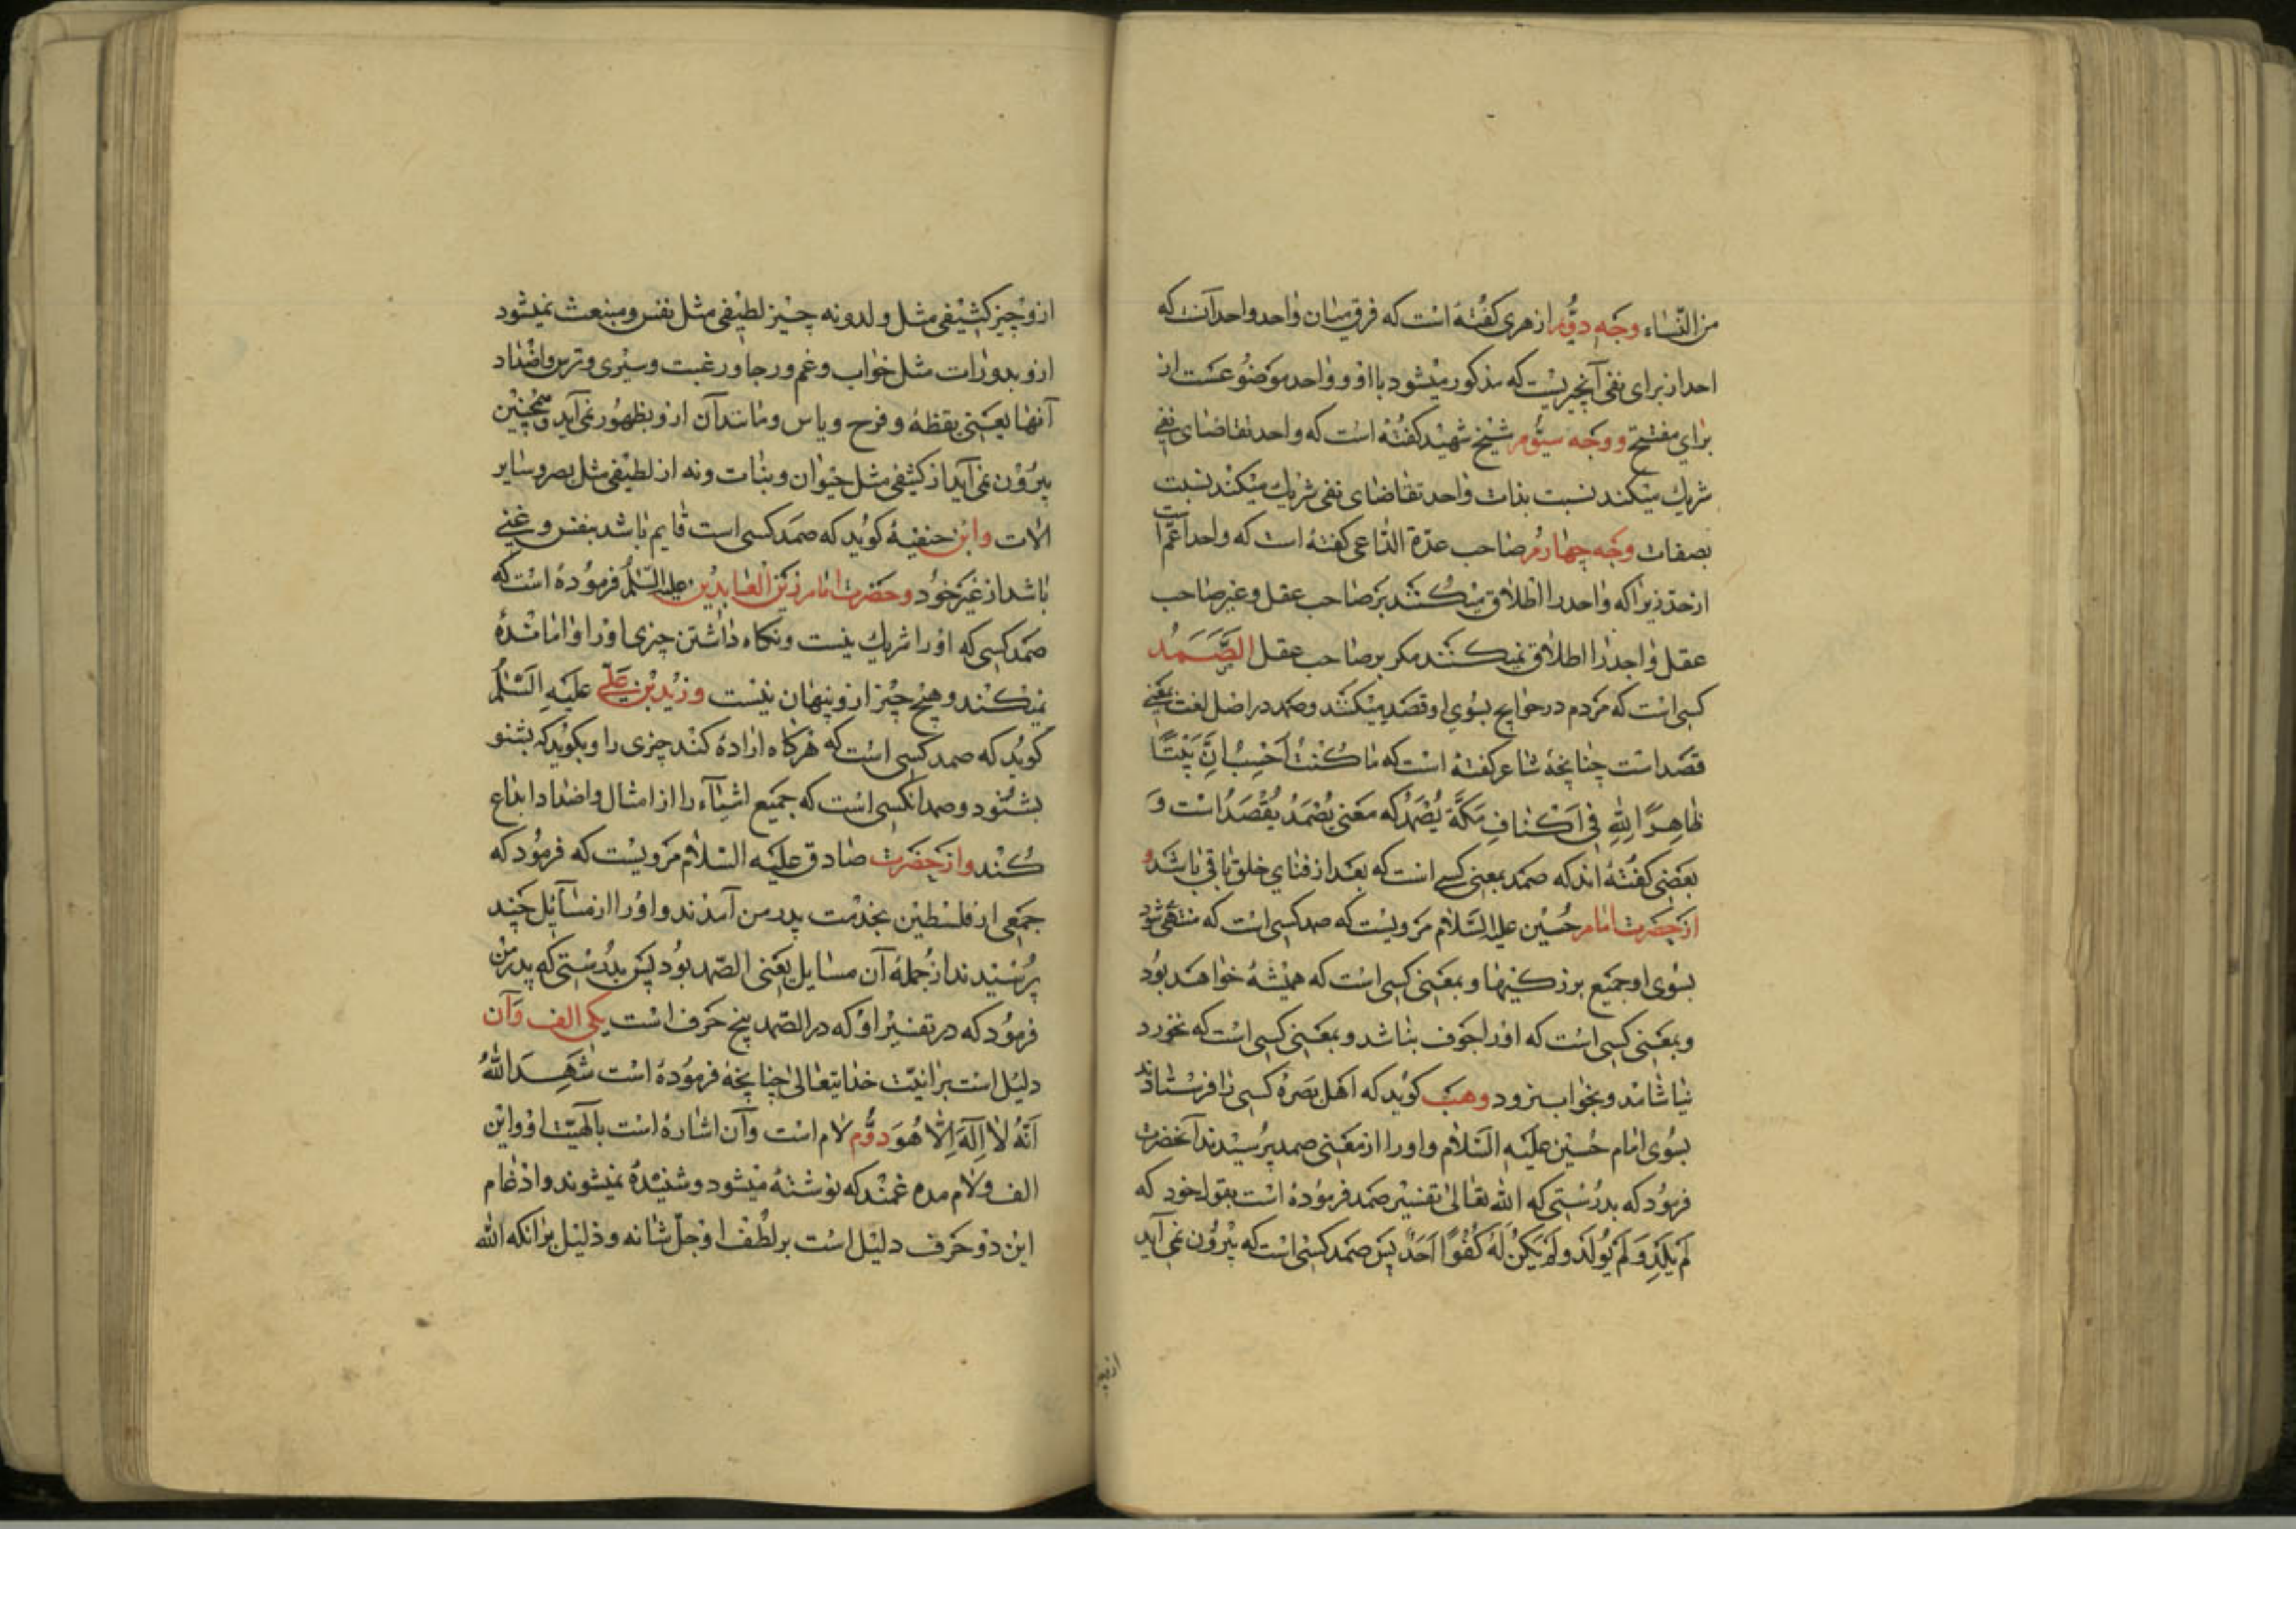 من النساء وجه دوّم ازهری کفته است که فرق میان واحد واحد آنست که
احد از برای نفی آنچیزیست که مذکور میشود با او و واحد موضوعست از
برای مفتتح و وجه سیّوم شیخ شهید کفته است که واحد تقاضای نفی
شریك میکند نسبت بذات واحد تقاضای نفی شریك میکند نسبت
بصفات وجه چهارم صاحب عدّة الدّاعی کفته است که واحد اعمّ است
از احد زیرا که واحد را اطلاق میکنند بر صاحب عقل و غیر صاحب
عقل واحد را اطلاق نمیکنند مکر بر صاحب عقل الصَّمَدُ
کسی است که مردم در حوایج بسوی او قصد میکنند و صمد در اصل لغت بمعنی
قصد است چنانچه شاعر کفته است که مَا کُنْتُ اَحْسِبُ اَنَّ بَیْتًا
ظَاهِرًا لِلّٰهِ فِی اَکْنَافِ مَکَّةَ یُصْمَدُ که معنی یُصْمَدُ یُقْصَدُ است و
بعضی کفته اند که صمد بمعنی کسی است که بعد از فنای خلق باقی باشد و
از حضرت امام حسین علیه السّلام مرویست که صمد کسی است که منتهی شود
بسوی او جمیع بزرکیها و بمعنی کسی است که همیشه خواهد بود
و بمعنی کسی است که او را جوف نباشد و بمعنی کسی است که نخورد
نیاشامد و بخواب نرود وهب کوید که اهل بصره کسی را فرستادند
بسوی امام حسین علیه السّلام و او را از معنی صمد پرسیدند آنحضرت
فرمود که بدرستی که اللّٰه تعالی تفسیر صمد فرموده است بقول خود که
لَمْ یَلِدْ وَلَمْ یُولَدْ وَلَمْ یَکُنْ لَهُ کُفُوًا اَحَدٌ پس صمد کسی است که بیرون نمی آید
ازو چیز کثیفی مثل ولد و نه چیز لطیفی مثل نفس و منبعث نمیشود
ازو بدورات مثل خواب و غم و رجا و رغبت و سیری و ترس و اضداد
آنها یعنی یقظه و فرح و یاس و مانند آن ازو بظهور نمی آید و همچنین
بیرون نمی آید از کثیفی مثل حیوان و نبات و نه از لطیفی مثل بصر و سایر
الات و ابن حنفیه کوید که صمد کسی است قایم باشد بنفس و غنی
باشد از غیر خود و حضرت امام زین العابدین علیه السّلم فرموده است که
صمد کسی که او را شریك نیست و نکاه داشتن چیزی او را وامانده
نمیکند و هیچ چیز ازو پنهان نیست و زید بن علی علیه السّلم
کوید که صمد کسی است که هرکاه اراده کند چیزی را و بکوید که بشنو
بشنود و صمد انکسی است که جمیع اشیاء را از امثال و اضداد ابداع
کند و از حضرت صادق علیه السّلام مرویست که فرمود که
جمعی از فلسطین بخدمت پدر من آمدند و او را از مسایل چند
پرسیدند از جمله آن مسایل یعنی الصّمد بود پس بدرستی که پدر من
فرمود که در تفسیر او که در الصّمد پنج حرف است یکی الف و آن
دلیل است بر انیّت خدایتعالی چنانچه فرموده است شَهِدَ اللّٰهُ
اَنَّهُ لَا اِلٰهَ اِلَّا هُوَ دوّم لام است و آن اشاره است بالهیّت او و این
الف و لام مدغمند که نوشته میشود و شنیده نمیشوند و ادغام
این دو حرف دلیل است بر لطف او جلّ شانه و دلیل بر انکه اللّٰه